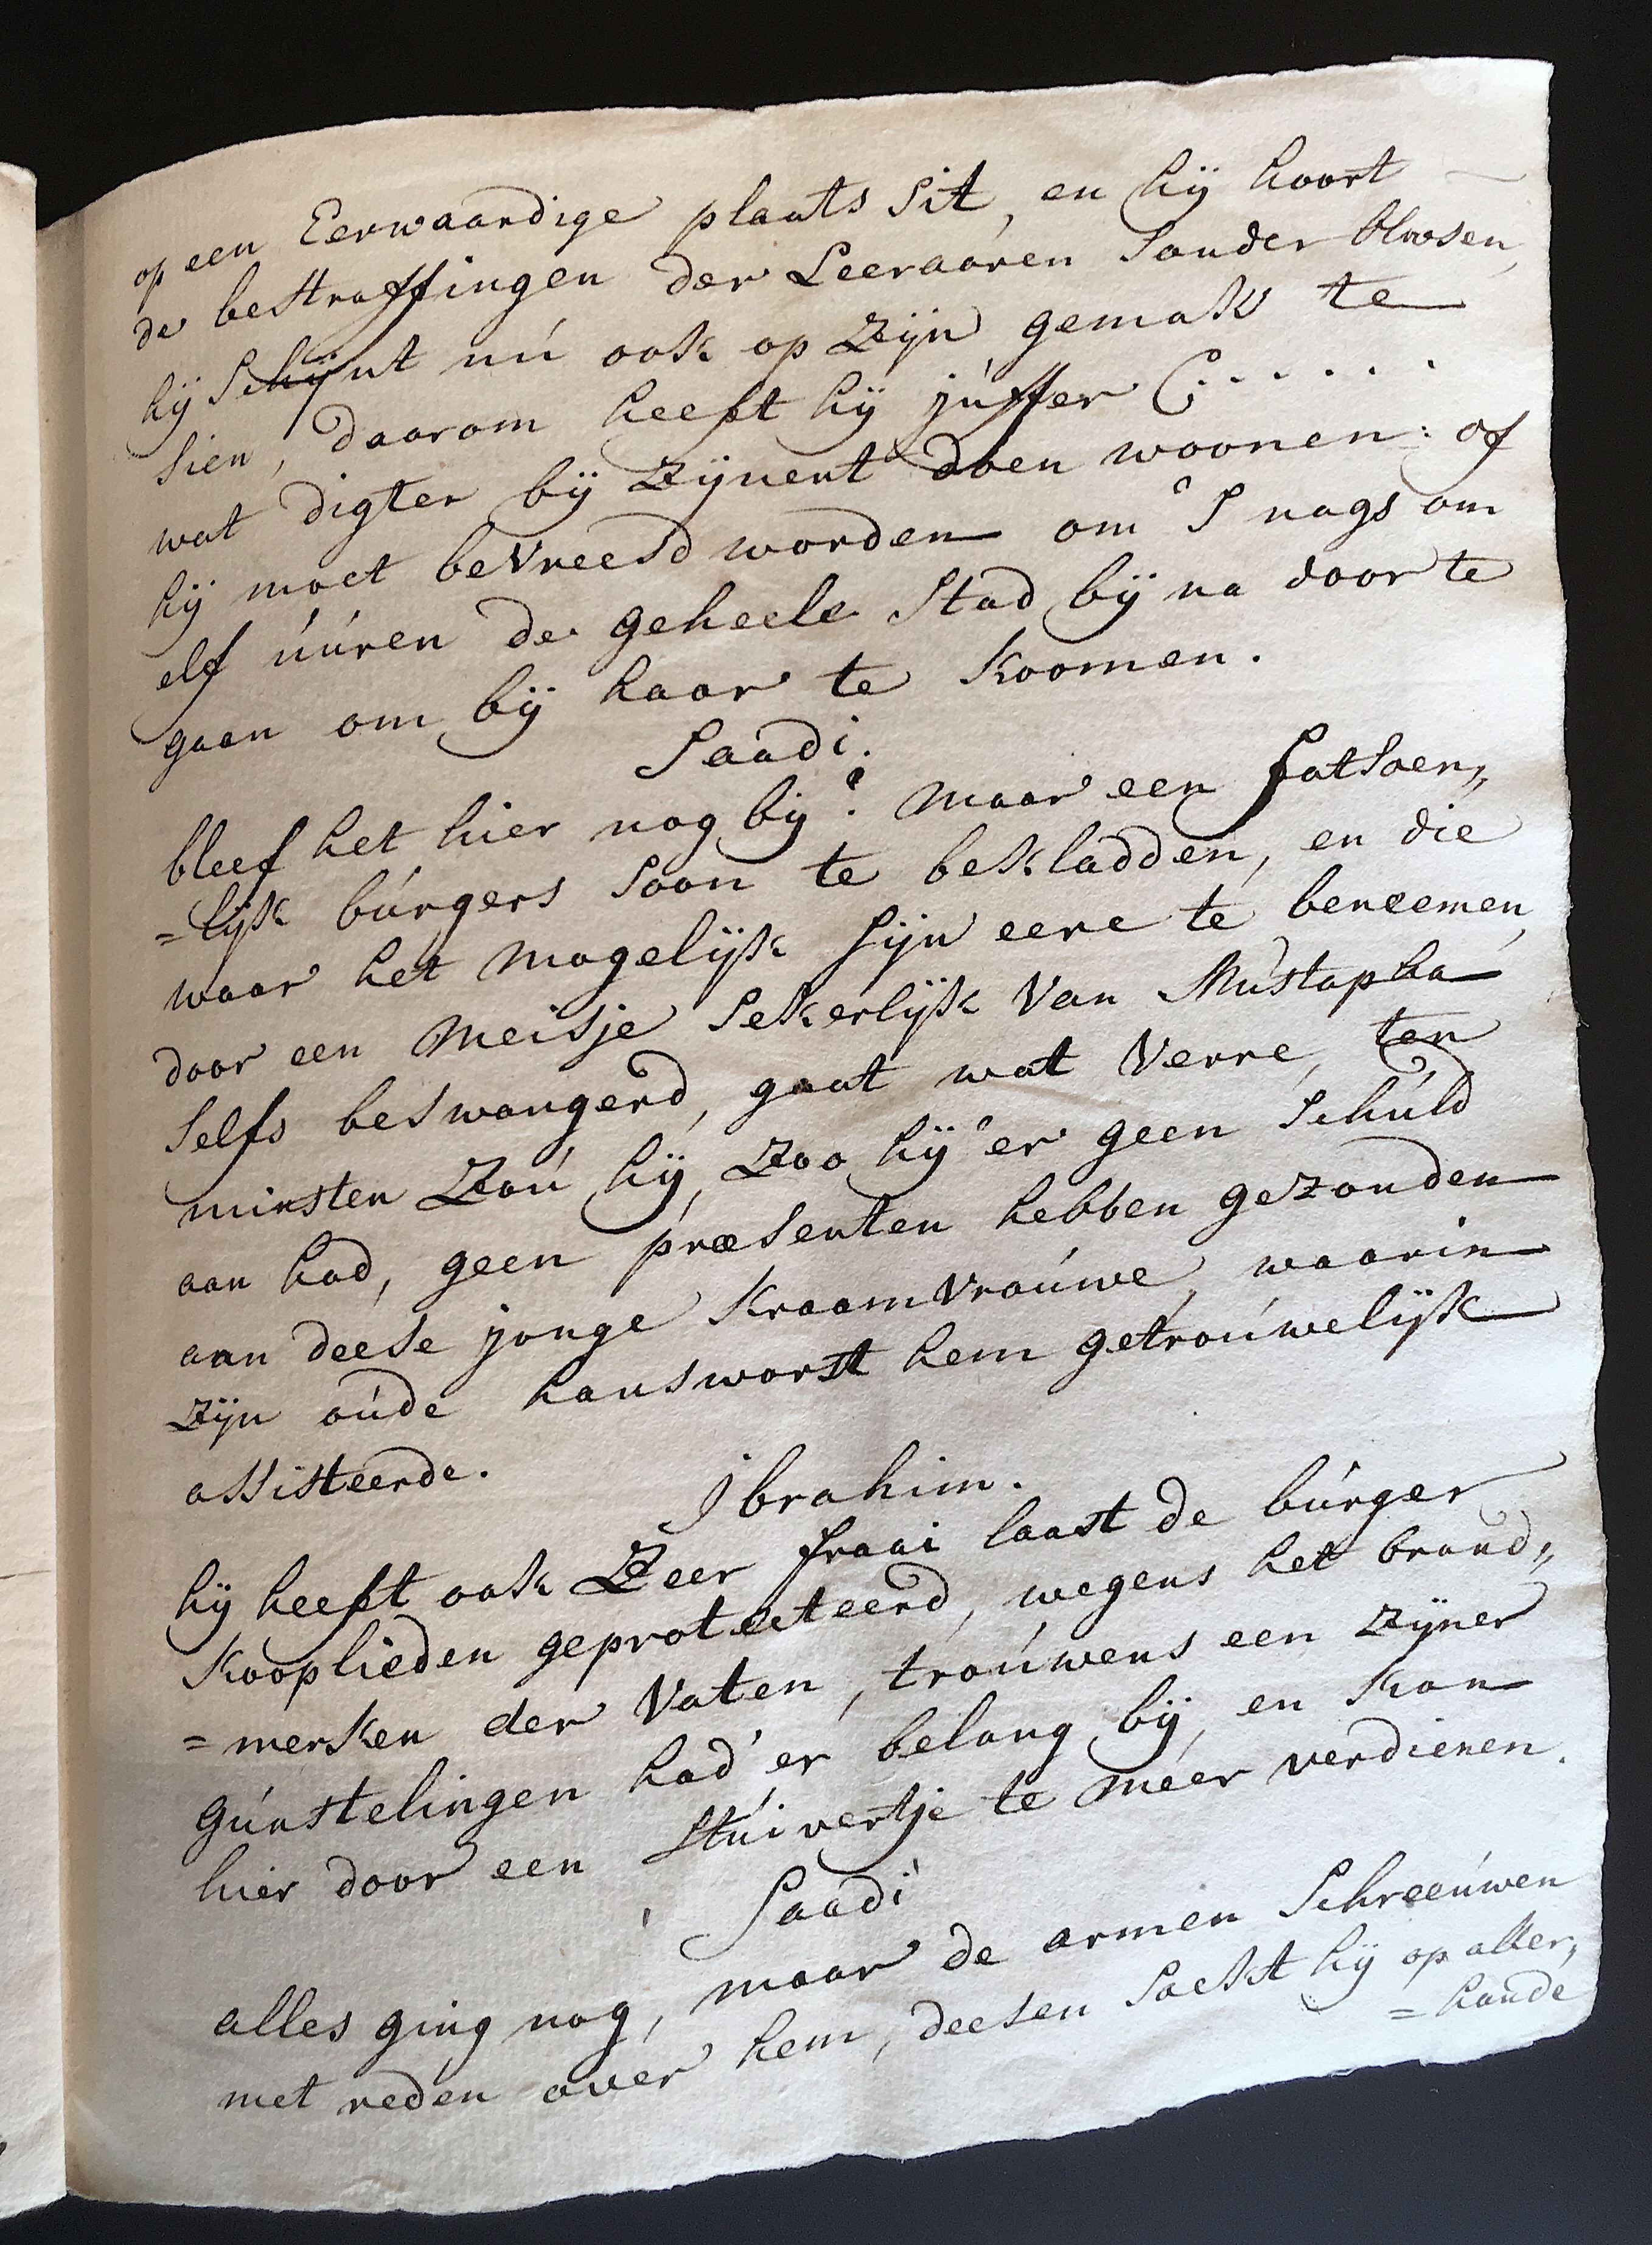 op een Eerwaardige plaats sit, en hij hoort
de bestraffingen der Leeraaren sonder blosen,
hij schijnt nú ook op zijn gemak te
sien, daarom heeft hij júffer C......
wat digter bij zijnent doen woonen: of
hij moet bevreesd worden om 's nags om
elf úúren de geheele stad bij na door te
gaan om bij haar te koomen.
Saadi.
bleef het hier nog bij? maar een fatsoen„
=lijk búrgers soon te bekladden, en die
waar het mogelijk sijn eere te beneemen,
door een meisje sekerlijk van Mústapha
selfs beswangerd, gaat wat verre, ten
minsten zoú hij, zoo hij 'er geen schúld
aan had, geen præsenten hebben gezonden
aan deese jonge kraamvroúwe, waarin
zijn oúde hansworst hem getroúwelijk
assisteerde.
Ibrahim.
hij heeft ook zeer fraai laast de búrger
kooplieden geprotecteerd, wegens het brand„
=merken der vaten, troúwens een zijner
gúnstelingen had 'er belang bij, en kan
hier door een stúivertje te meer verdienen.
Saadi
alles ging nog, maar de armen schreeúwen
met reden over hem, deesen soekt hij op aller„
=hande